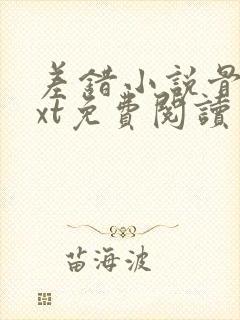 差錯小說骨
xt免費閱讀
苗海波